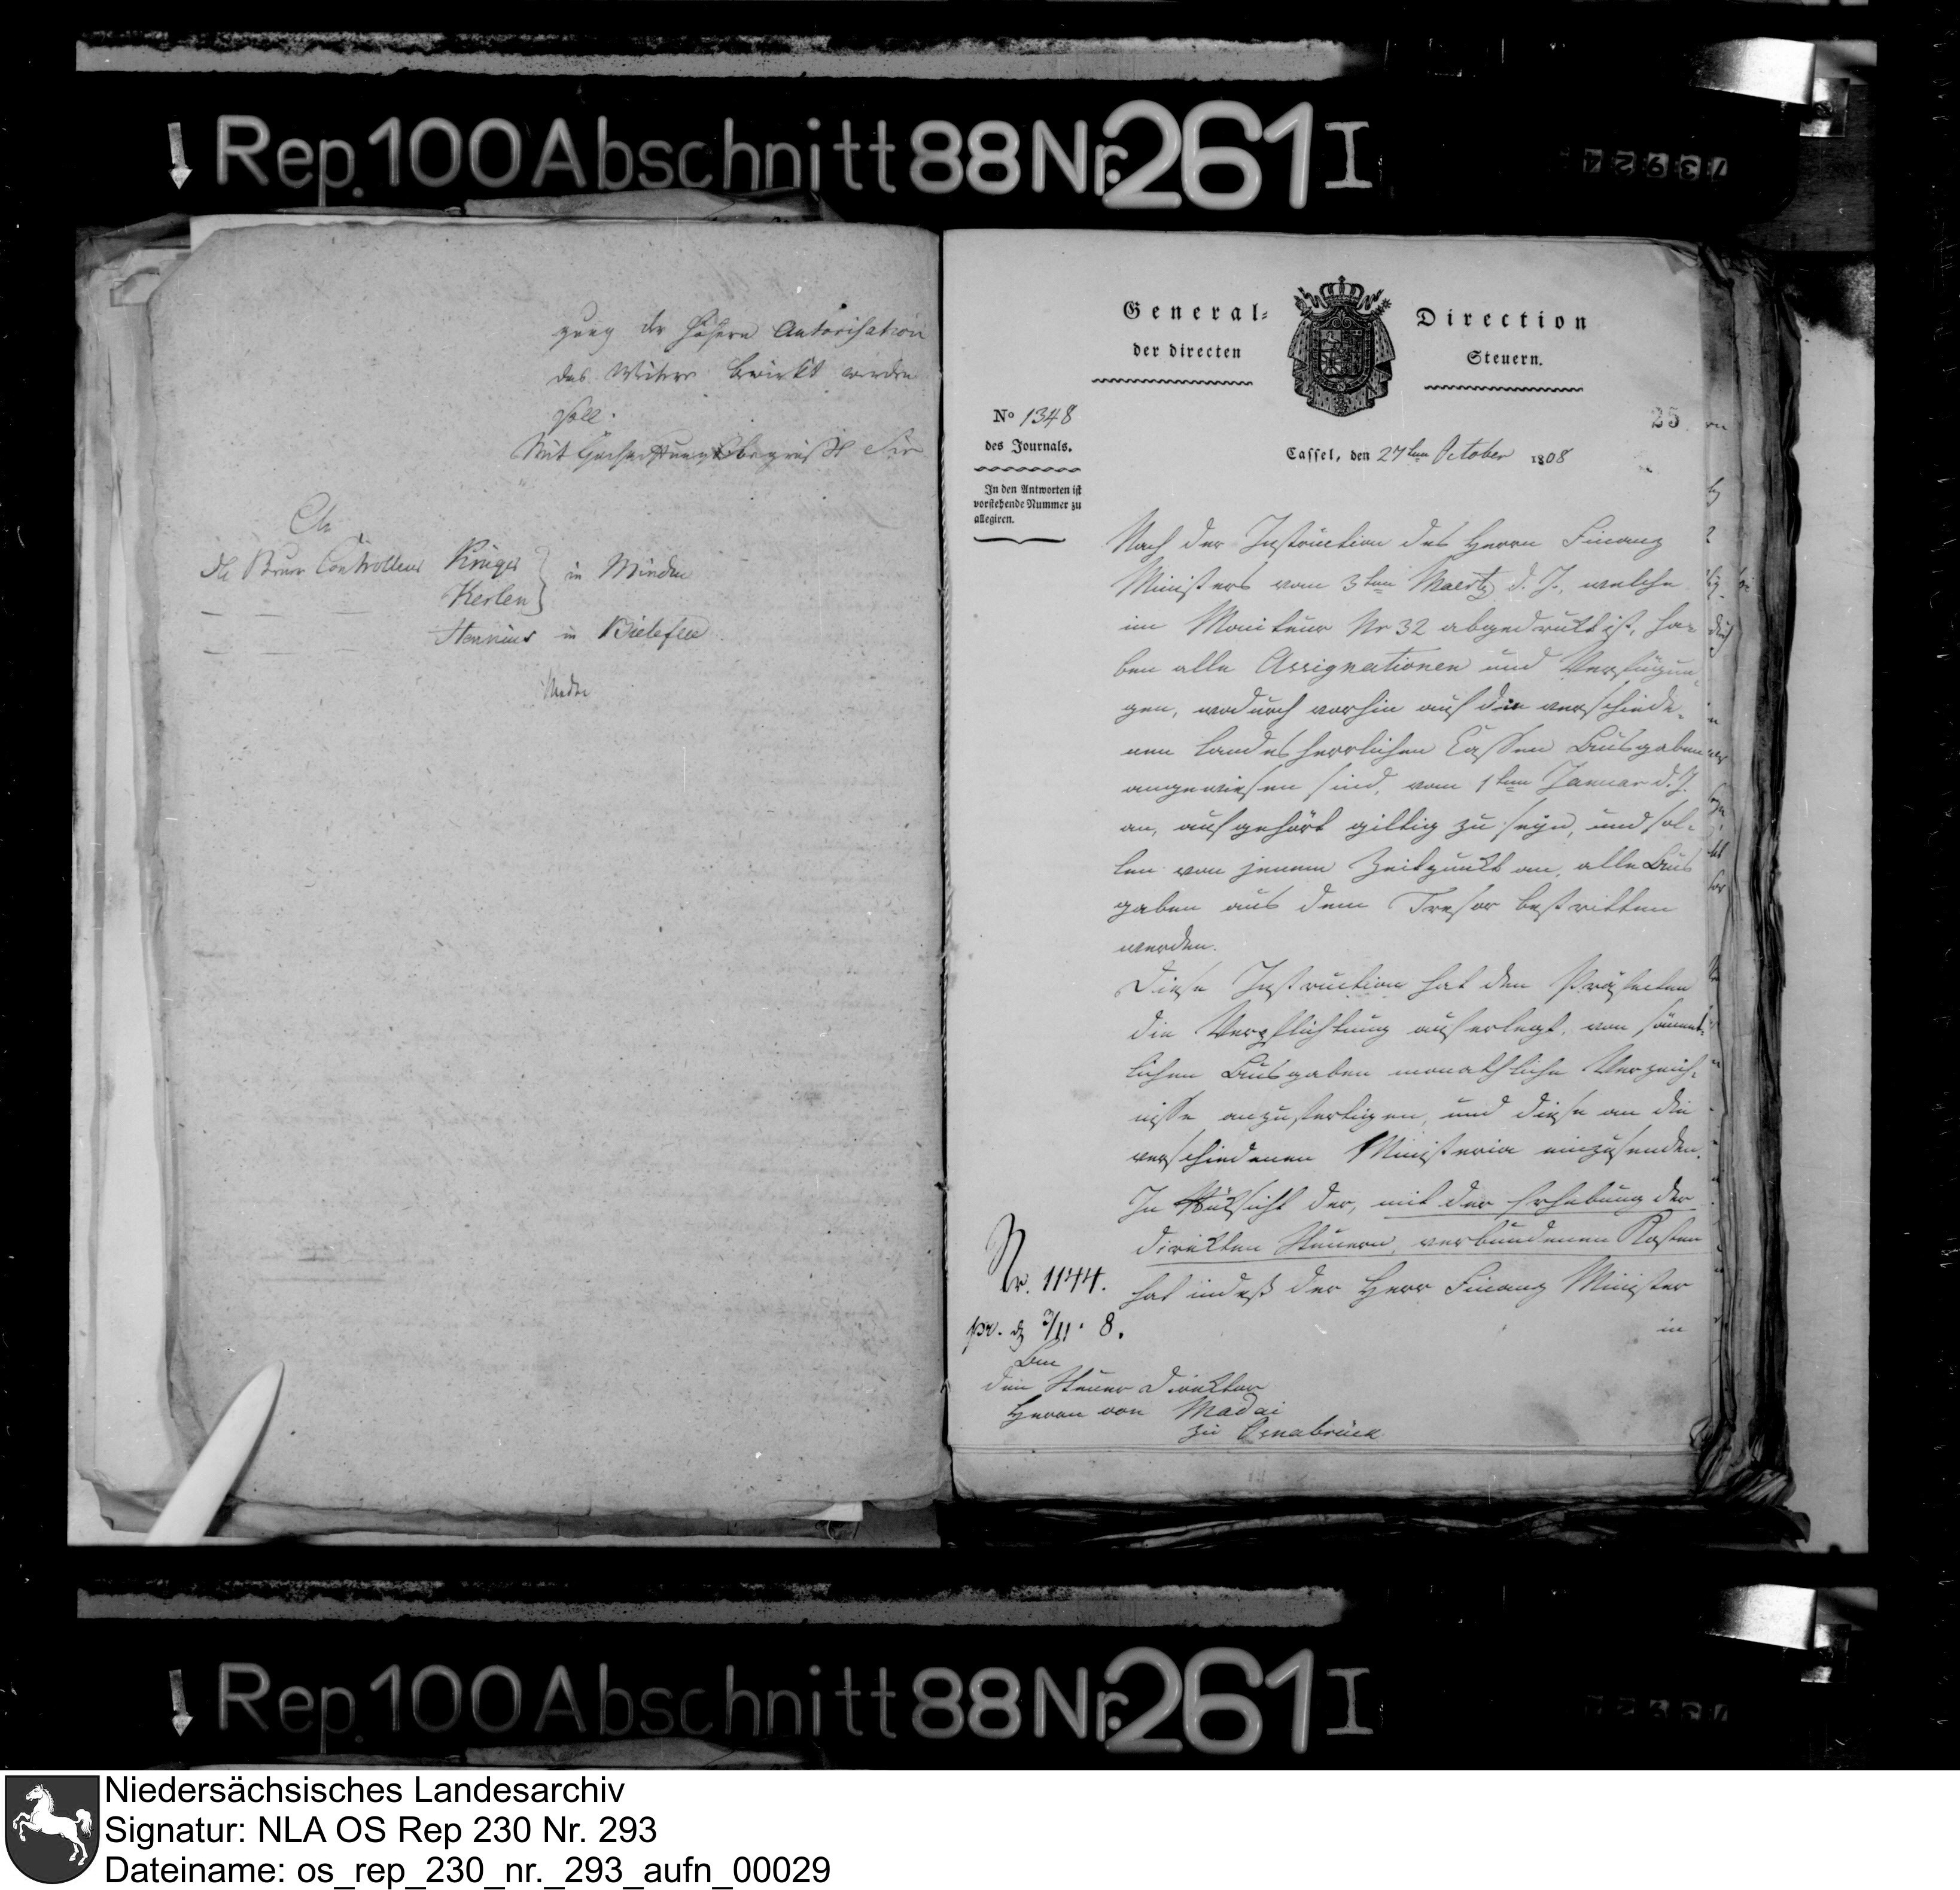 Rep. 100 Abschnitt 88 Nr. 261 I
73924
gung der höhern Autorisation
das Weitere bewirkt werden
soll.
Mit Hochachtung begrüßt Sie
An
die Steuer Controlleurs Krüger
Kerlen } in Minden
Hennius in Bielefeld
Madai
General-Direction
der directen Steuern.
No 1348
des Journals.
In den Antworten ist
vorstehende Nummer zu
allegiren.
25
Cassel, den 27ten October 1808
Nach der Instruction des Herrn Finanz
Ministers vom 3ten Maertz d. J., welche
im Moniteur Nr 32 abgedruckt ist, ha-
ben alle Assignationen und Verfügun-
gen, wodurch vorhin auf die verschiede-
nen landesherrlichen Cassen Ausgaben
angewiesen sind, vom 1ten Januar d. J.
an, aufgehört giltig zu seyn, und sol-
len von jenem Zeitpunkt an, alle Aus
gaben aus dem Tresor bestritten
werden.
Diese Instruction hat den Präfecten
die Verpflichtung auferlegt, von sämmt-
lichen Ausgaben monathliche Verzeich-
nisse anzufertigen, und diese an die
verschiedenen Ministeria einzusenden.
In Rücksicht der, mit der Erhebung der
direkten Steuern, verbundenen Kosten
hat indeß der Herr Finanz Minister
in
Nr. 1144.
pr. d 3/11. 8.
An
den Steuer Direktor
Herrn von Madai
zu Osnabrück
Rep. 100 Abschnitt 88 Nr. 261 I
Niedersächsisches Landesarchiv
Signatur: NLA OS Rep 230 Nr. 293
Dateiname: os_rep_230_nr._293_aufn_00029